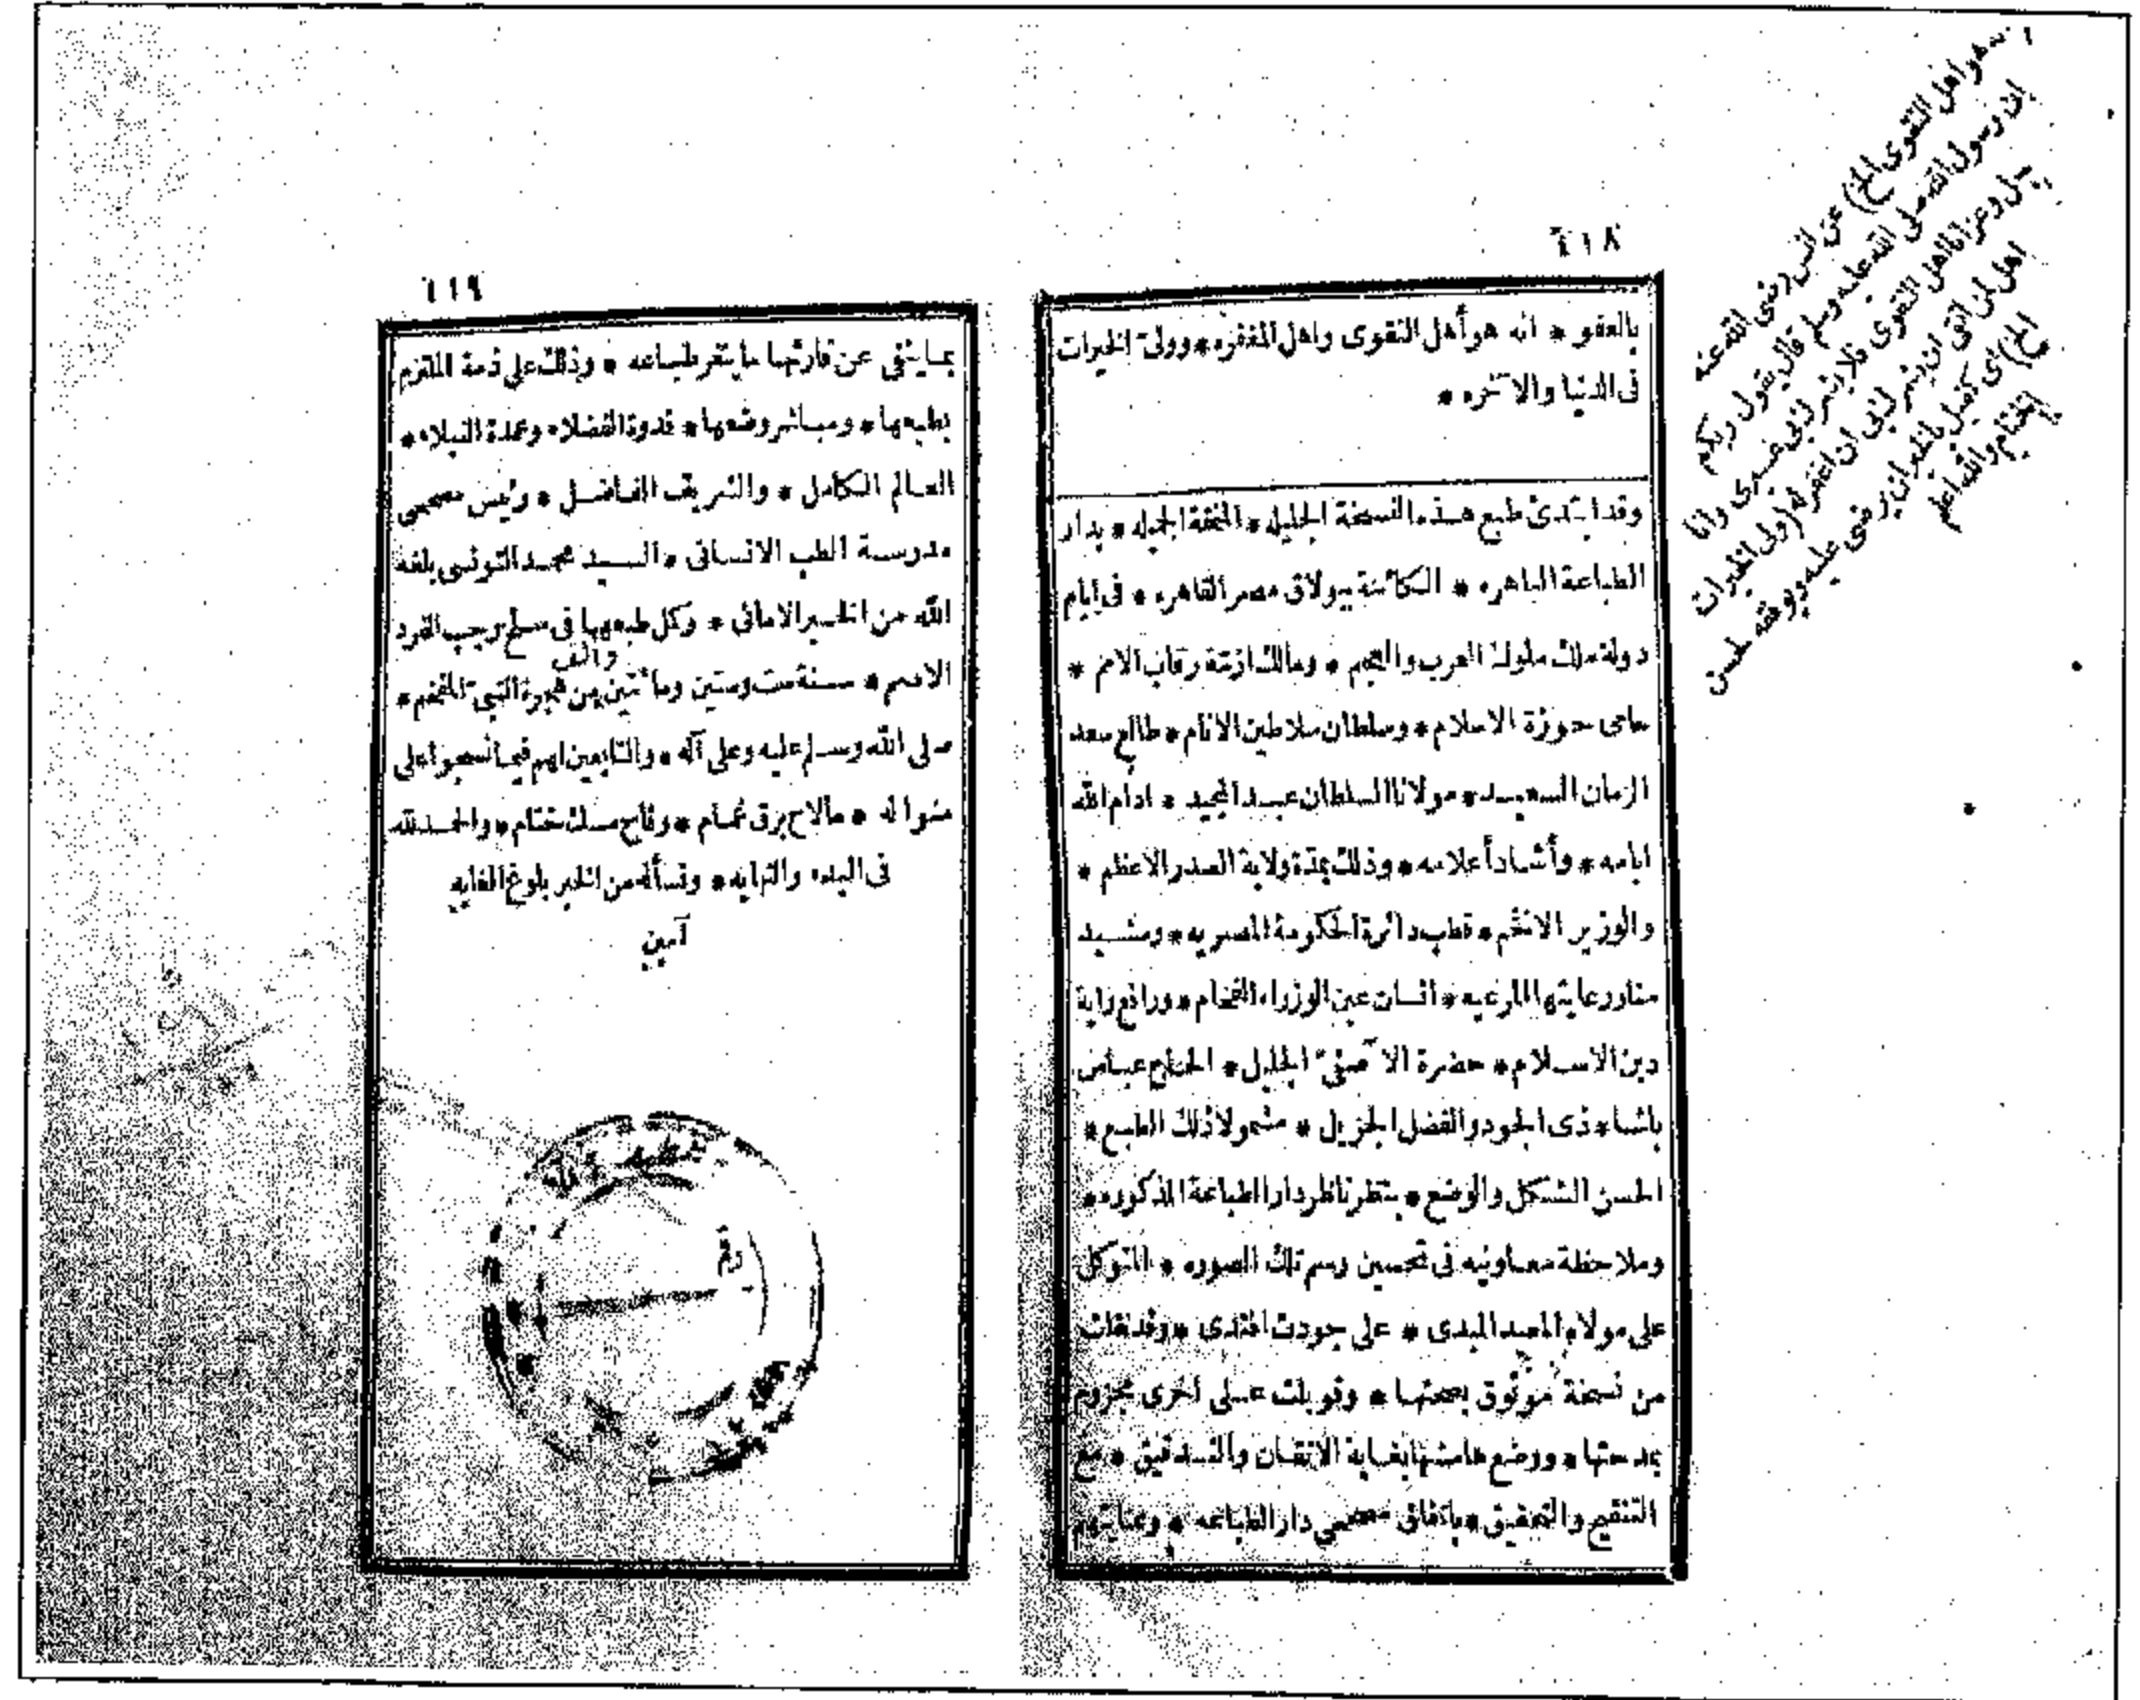 ٤١٨
بالعفو * انه هو أهل التقوى واهل المغفره * وولى الخيرات
فى الدنيا والآخره *
وقد ابتدئ طبع هذه النسخة الجليله * التحفة الجميله * بدار
الطباعة الباهره * الكائنة ببولاق مصر القاهره * فى ايام
دولة ملك ملوك العرب والعجم * ومالك ازمّة رقاب الامم *
حامى حوزة الاسلام * وسلطان سلاطين الانام * طالع سعد
الزمان السعيد * مولانا السلطان عبد المجيد * ادام الله
ايامه * وأشاد أعلامه * وذلك بمدّة ولاية الصدر الاعظم *
والوزير الافخم * قطب دائرة الحكومة المصريه * ومشيد
منار رعايتها المرعيه * انسان عين الوزراء الفخام * ورافع راية
دين الاسلام * حضرة الآصفىّ الجليل * الحاج عباس
باشا * ذى الجود والفضل الجزيل * مشمولا ذلك الطبع *
الحسن الشكل والوضع * بنظر ناظر دار الطباعة المذكوره *
وملاحظة معاونيه فى تحسين رسم تلك الصوره * المتوكل
على مولاه المعيد المبدى * على جودت افندى * وقد نقلت
من نسخة موثوق بصحتها * وقوبلت على أخرى مجزوم
بمدحتها * ووضع هامشها بغاية الاتقان والتدقيق * مع
التنقيح والتحقيق * باتفاق مصححى دار الطباعه * وعنايتهم
هو اهل التقوى الخ) عن انس رضى الله عنه
ان رسول الله صلى الله عليه وسلم قال يقول ربكم
جل وعز انا اهل التقوى فلا يشرك بى غيرى وانا
اهل لمن اتقى ان يشرك بى ان اغفر له (ولى الخيرات
الخ) اى كفيل بالخيران يرضى عليه ويوفقه لحسن
الختام والله اعلم
٤١٩
بما ينفى عن قارئها ما ينفر طباعه * وذلك على ذمة الملتزم
بطبعها * ومباشر وضعها * قدوة الفضلاء وعمدة النبلاء *
العالم الكامل * والشريف الفاضل * رئيس مصححى
مدرسة الطب الانسانى * السيد محمد التونسى بلغه
الله من الخير الامانى * وكمل طبعها فى سلخ رجب الفرد
الاصم * سنة ست وستين ومائتين وألف من هجرة النبىّ المفخم *
صلى الله وسلم عليه وعلى آله * والتابعين لهم فيما نسجوا على
منواله * مالاح برق غمام * وفاح مسك ختام * والحمد لله
فى البدء والنهايه * ونسأله من الخير بلوغ الغايه
آمين
رقم